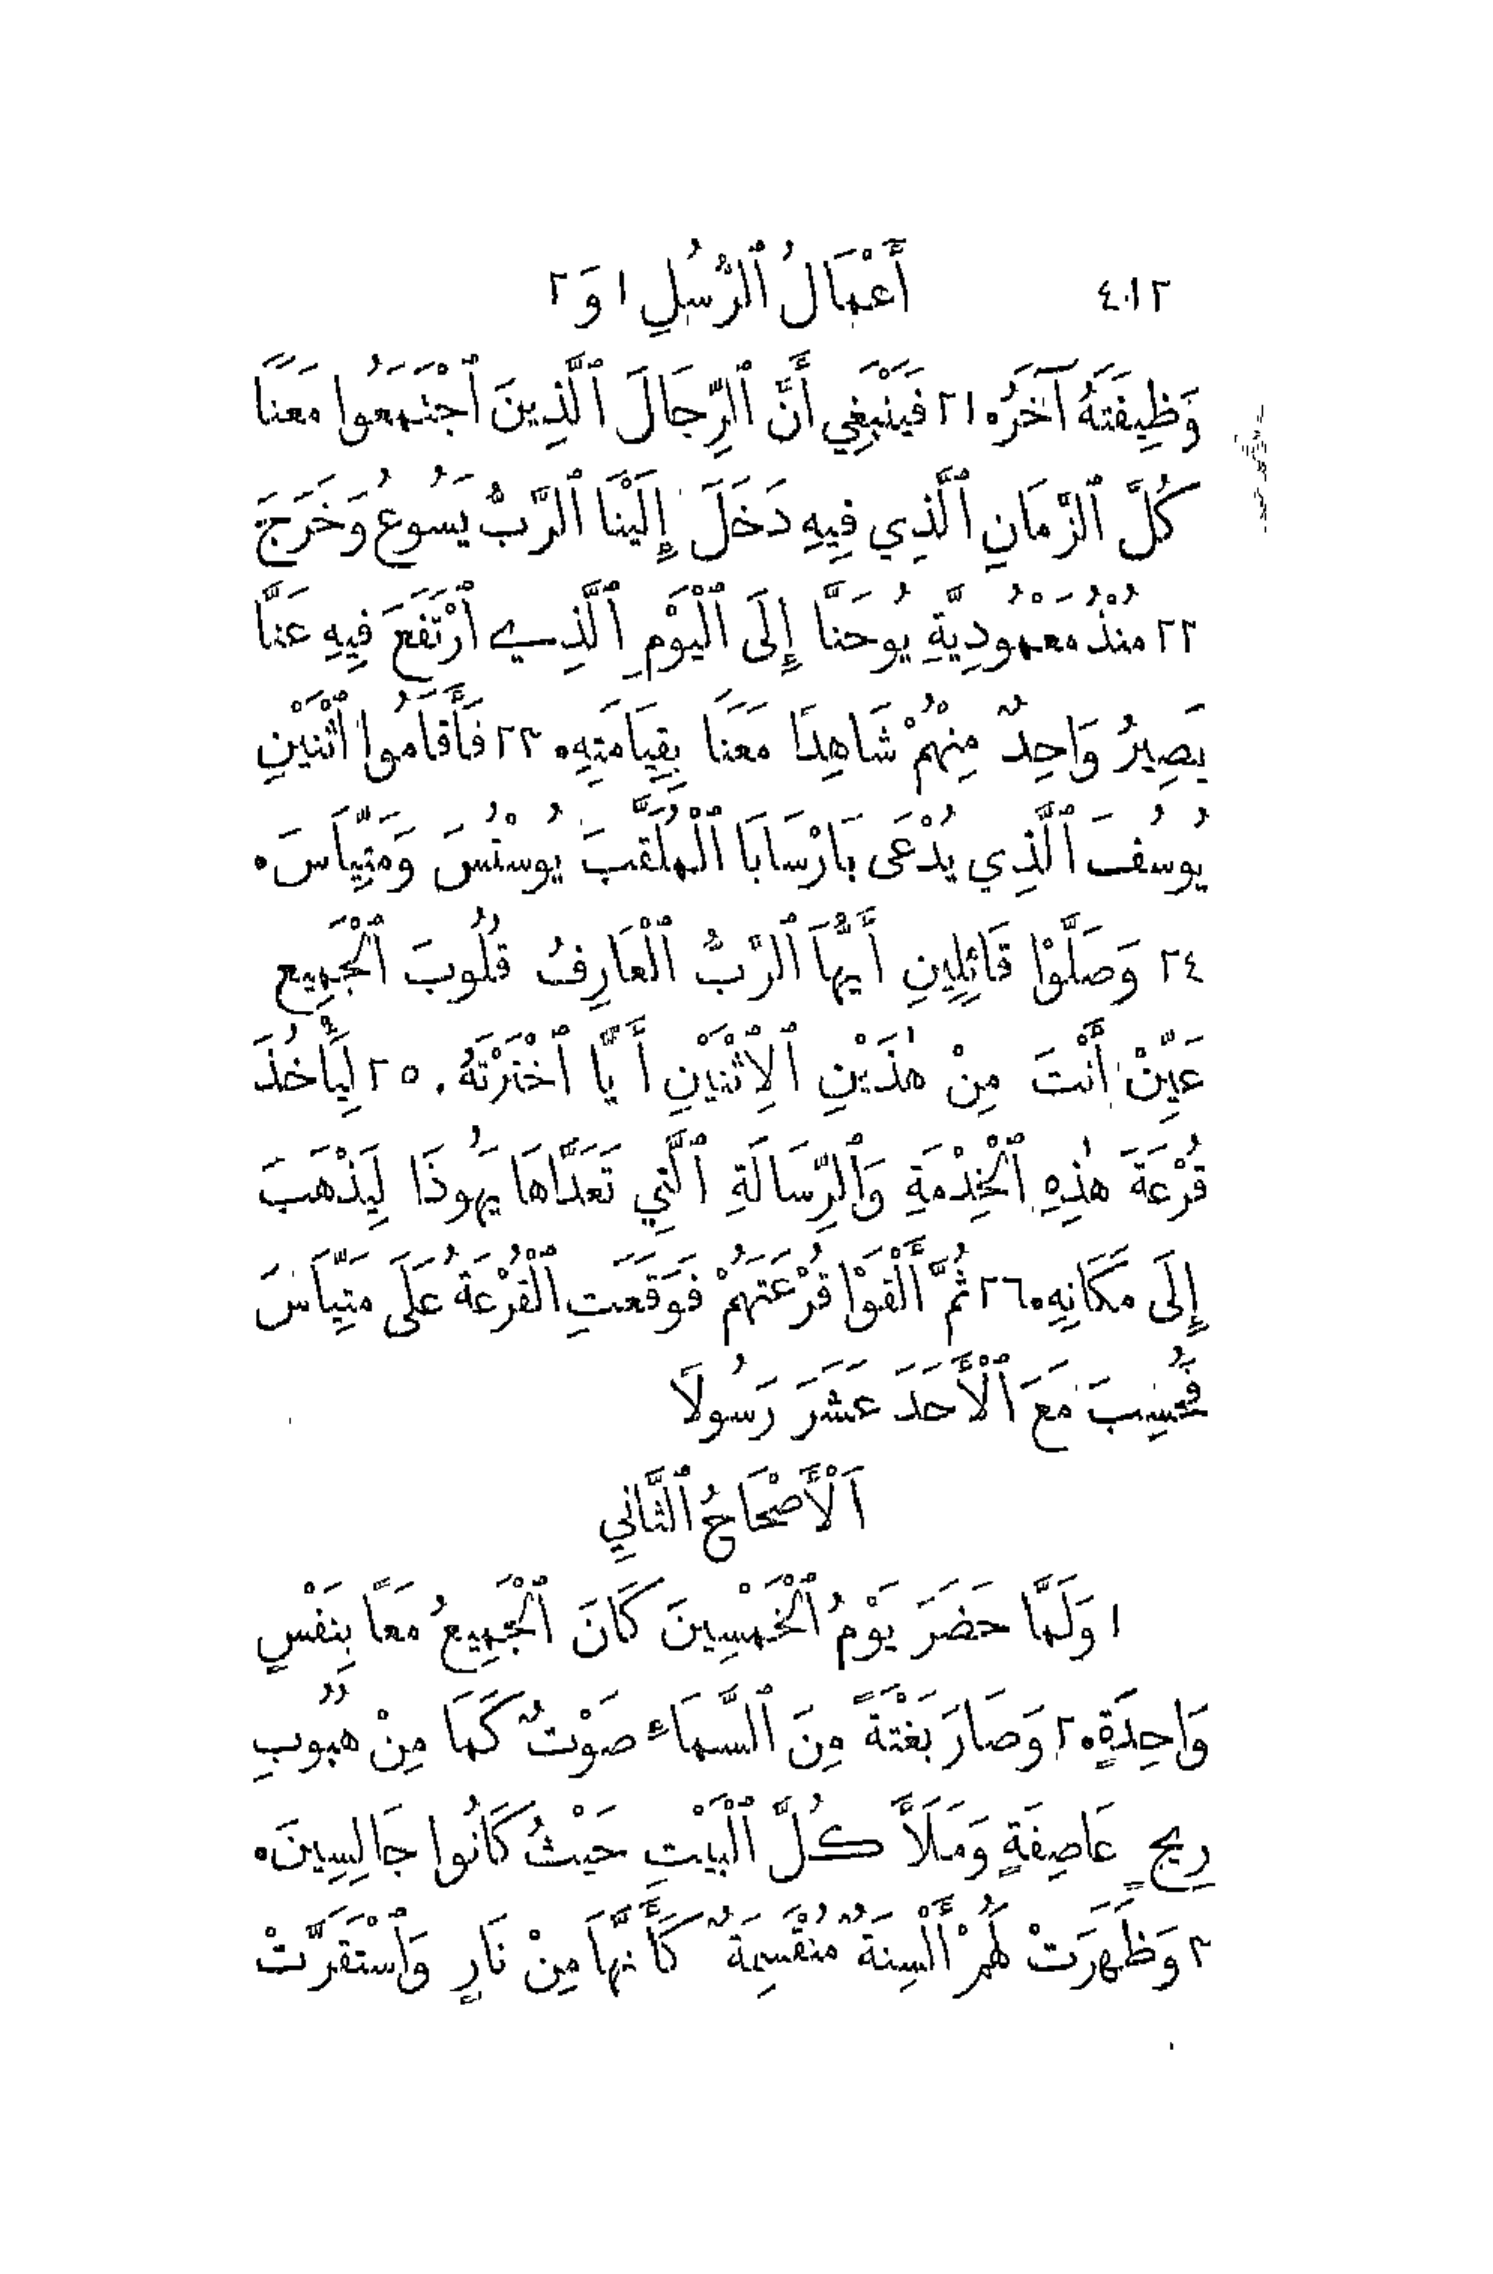 ٤٠١٢ أَعْمَالُ ٱلرُّسُلِ ١ وَ ٢
وَظِيفَتَهُ آخَرُ. ٢١ فَيَنْبَغِي أَنَّ ٱلرِّجَالَ ٱلَّذِينَ ٱجْتَمَعُوا مَعَنَا
كُلَّ ٱلزَّمَانِ ٱلَّذِي فِيهِ دَخَلَ إِلَيْنَا ٱلرَّبُّ يَسُوعُ وَخَرَجَ
٢٢ مُنْذُ مَعْمُودِيَّةِ يُوحَنَّا إِلَى ٱلْيَوْمِ ٱلَّذِي ٱرْتَفَعَ فِيهِ عَنَّا
يَصِيرُ وَاحِدٌ مِنْهُمْ شَاهِدًا مَعَنَا بِقِيَامَتِهِ. ٢٣ فَأَقَامُوا ٱثْنَيْنِ
يُوسُفَ ٱلَّذِي يُدْعَى بَارْسَابَا ٱلْمُلَقَّبَ يُوسْتُسَ وَمَتِّيَاسَ.
٢٤ وَصَلَّوْا قَائِلِينِ أَيُّهَا ٱلرَّبُّ ٱلْعَارِفُ قُلُوبَ ٱلْجَمِيعِ
عَيِّنْ أَنْتَ مِنْ هٰذَيْنِ ٱلِٱثْنَيْنِ أَيًّا ٱخْتَرْتَهُ. ٢٥ لِيَأْخُذَ
قُرْعَةَ هٰذِهِ ٱلْخِدْمَةِ وَٱلرِّسَالَةِ ٱلَّتِي تَعَدَّاهَا يَهُوذَا لِيَذْهَبَ
إِلَى مَكَانِهِ. ٢٦ ثُمَّ أَلْقَوْا قُرْعَتَهُمْ فَوَقَعَتِ ٱلْقُرْعَةُ عَلَى مَتِّيَاسَ
فَحُسِبَ مَعَ ٱلْأَحَدَ عَشَرَ رَسُولًا
اَلْأَصْحَاحُ ٱلثَّانِي
١ وَلَمَّا حَضَرَ يَوْمُ ٱلْخَمْسِينَ كَانَ ٱلْجَمِيعُ مَعًا بِنَفْسٍ
وَاحِدَةٍ. ٢ وَصَارَ بَغْتَةً مِنَ ٱلسَّمَاءِ صَوْتٌ كَمَا مِنْ هُبُوبِ
رِيحٍ عَاصِفَةٍ وَمَلَأَ كُلَّ ٱلْبَيْتِ حَيْثُ كَانُوا جَالِسِينَ.
٣ وَظَهَرَتْ لَهُمْ أَلْسِنَةٌ مُنْقَسِمَةٌ كَأَنَّهَا مِنْ نَارٍ وَٱسْتَقَرَّتْ